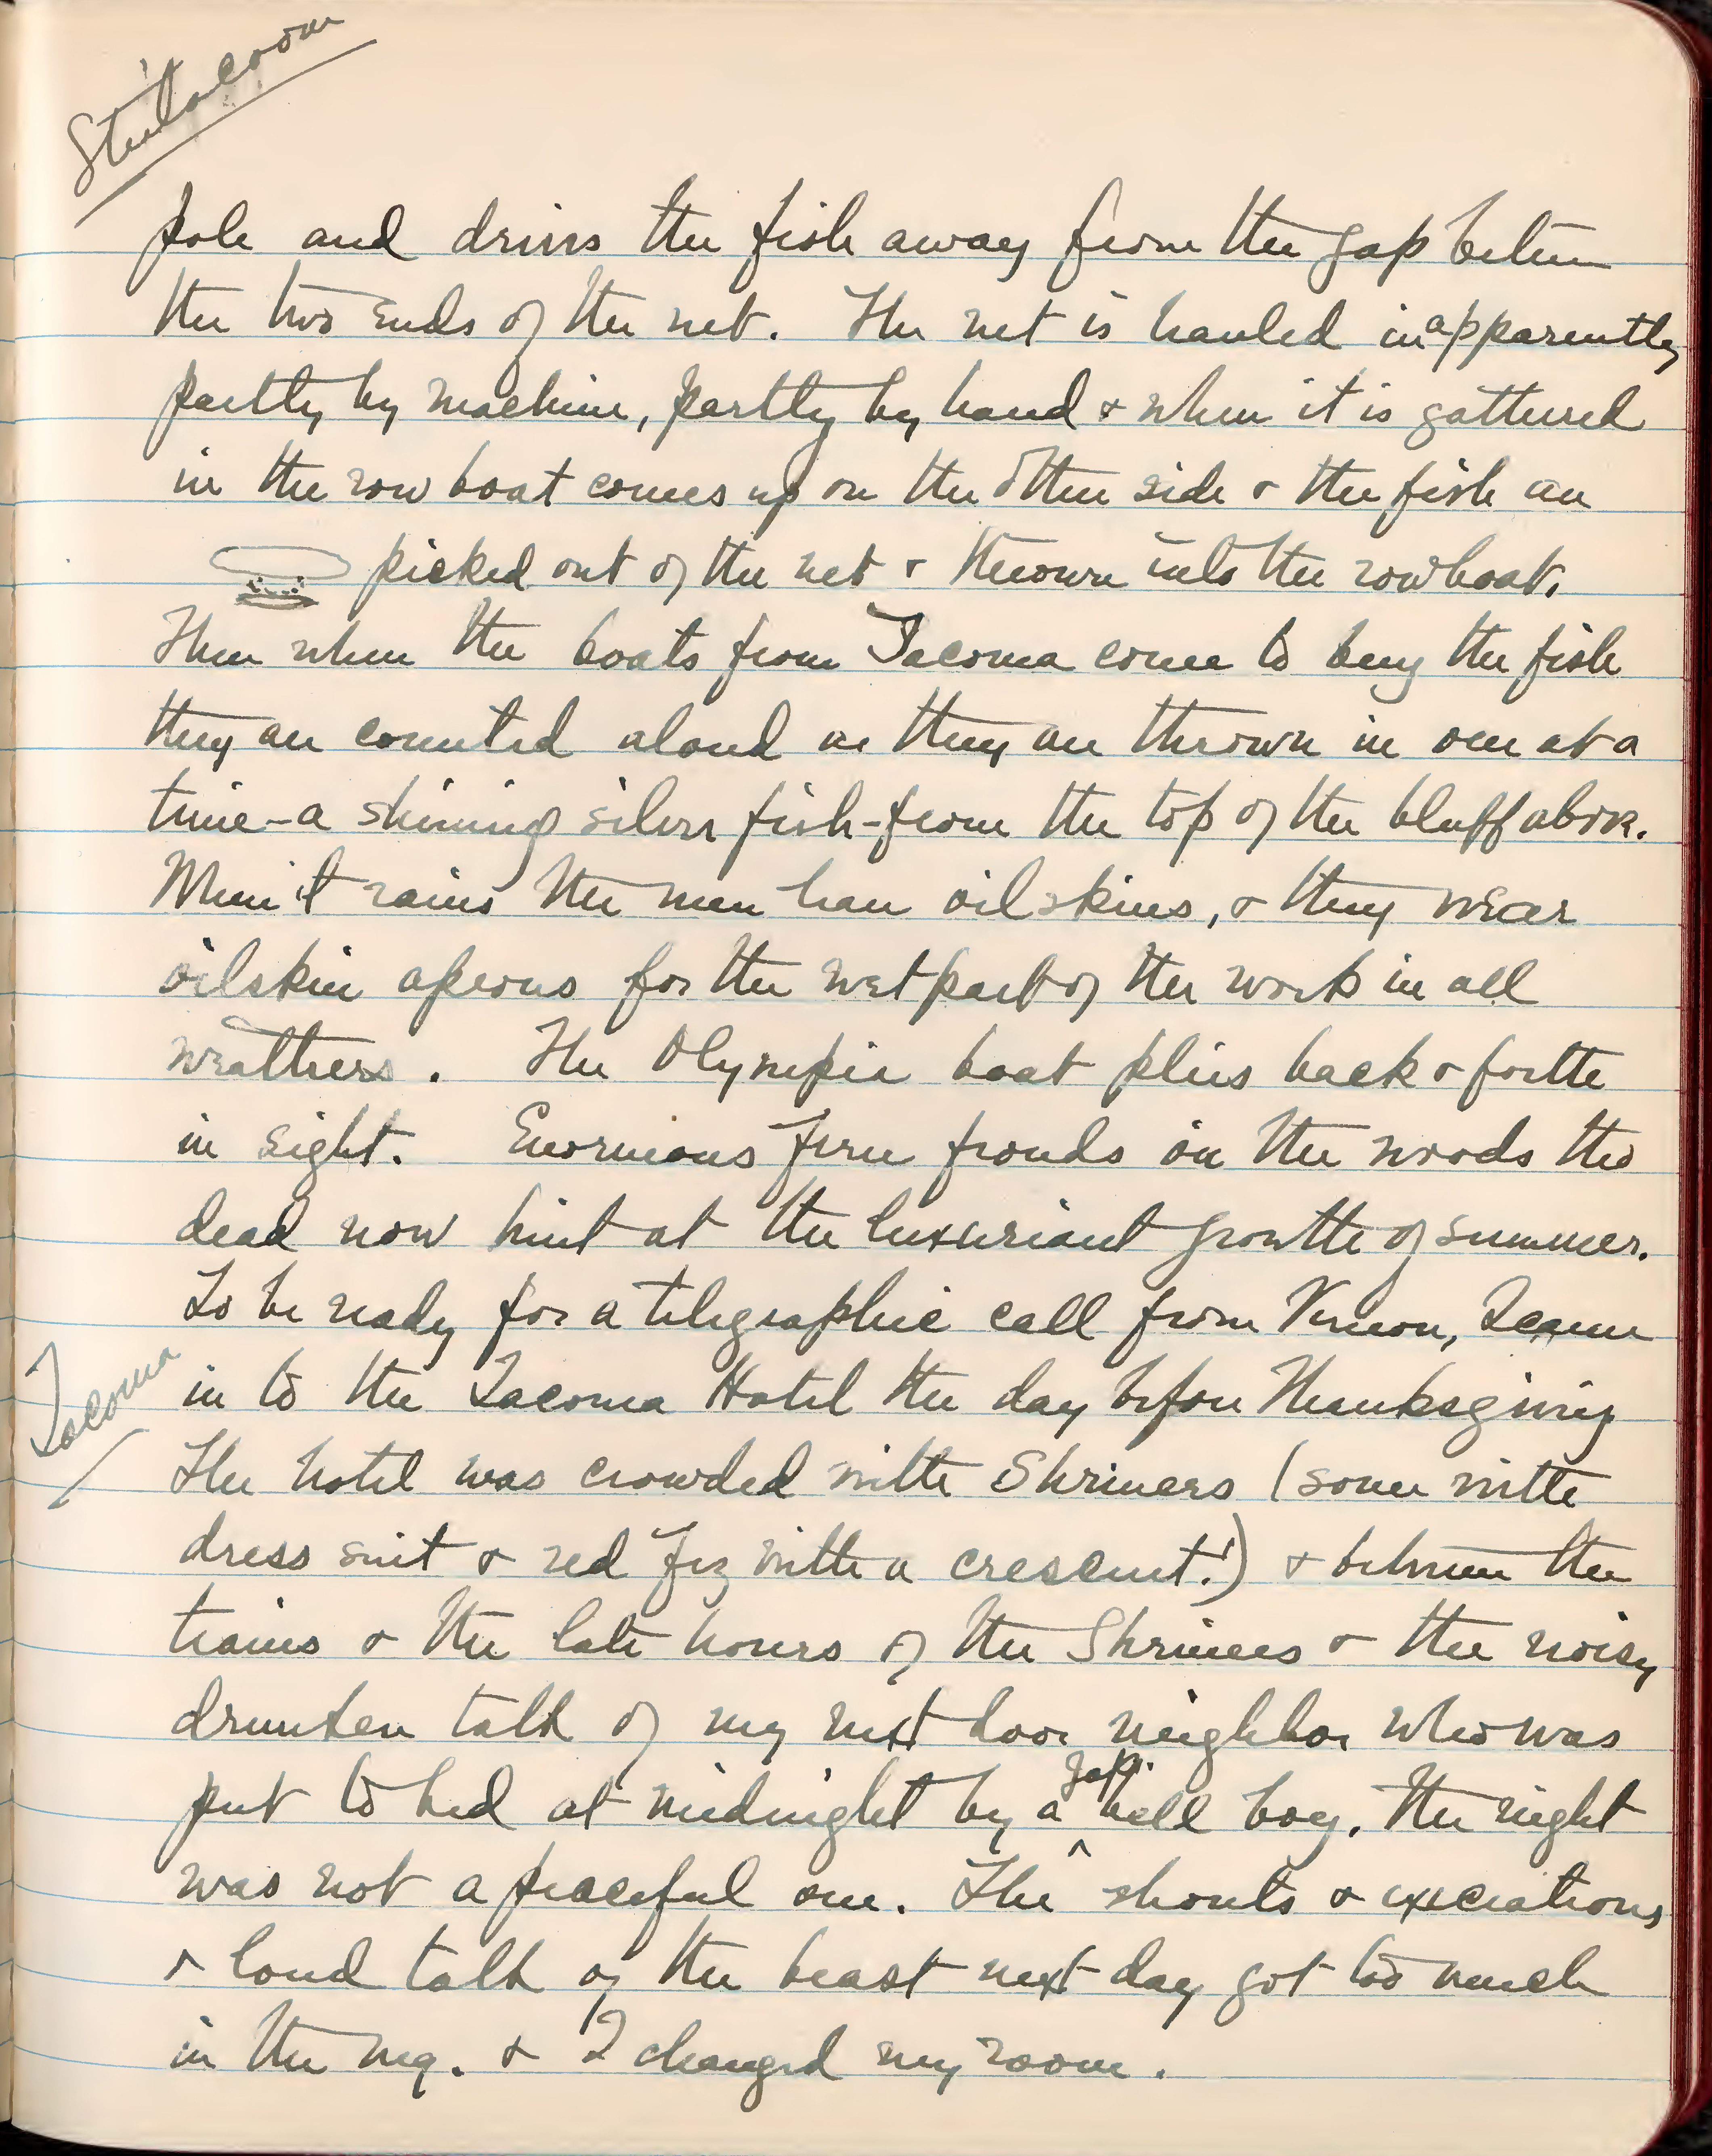 Steilacoom
pole and drives the fish away from the gap between
the two ends of the net. The net is hauled in apparently
partly by machine, partly by hand & when it is gathered
in the row boat comes up on the other side & the fish are
picked out of the net & thrown into the rowboat.
Then when the boats from Tacoma come to buy the fish
they are counted aloud as they are thrown in one at a
time - a shining silver fish - from the top of the bluff above.
When it rains the men have oilskins, & they wear
oilskin aprons for the wet part of the work in all
weathers. The Olympia boat plies back & forth
in sight. Enormous fern fronds in the woods tho
dead now hint at the luxuriant growth of summer.
To be ready for a telegraphic call from Vernon, I came
Tacoma
in to the Tacoma Hotel the day before Thanksgiving
The hotel was crowded with Shriners (some with
dress suit & red fez with a crescent!) & between the
trains & the late hours of the Shriners & the noisy
drunken talk of my next door neighbor who was
put to bed at midnight by a Jap. bell boy, the night
was not a peaceful one. The shouts & execrations
& loud talk of the beast next day got too much
in the mg. & I changed my room.